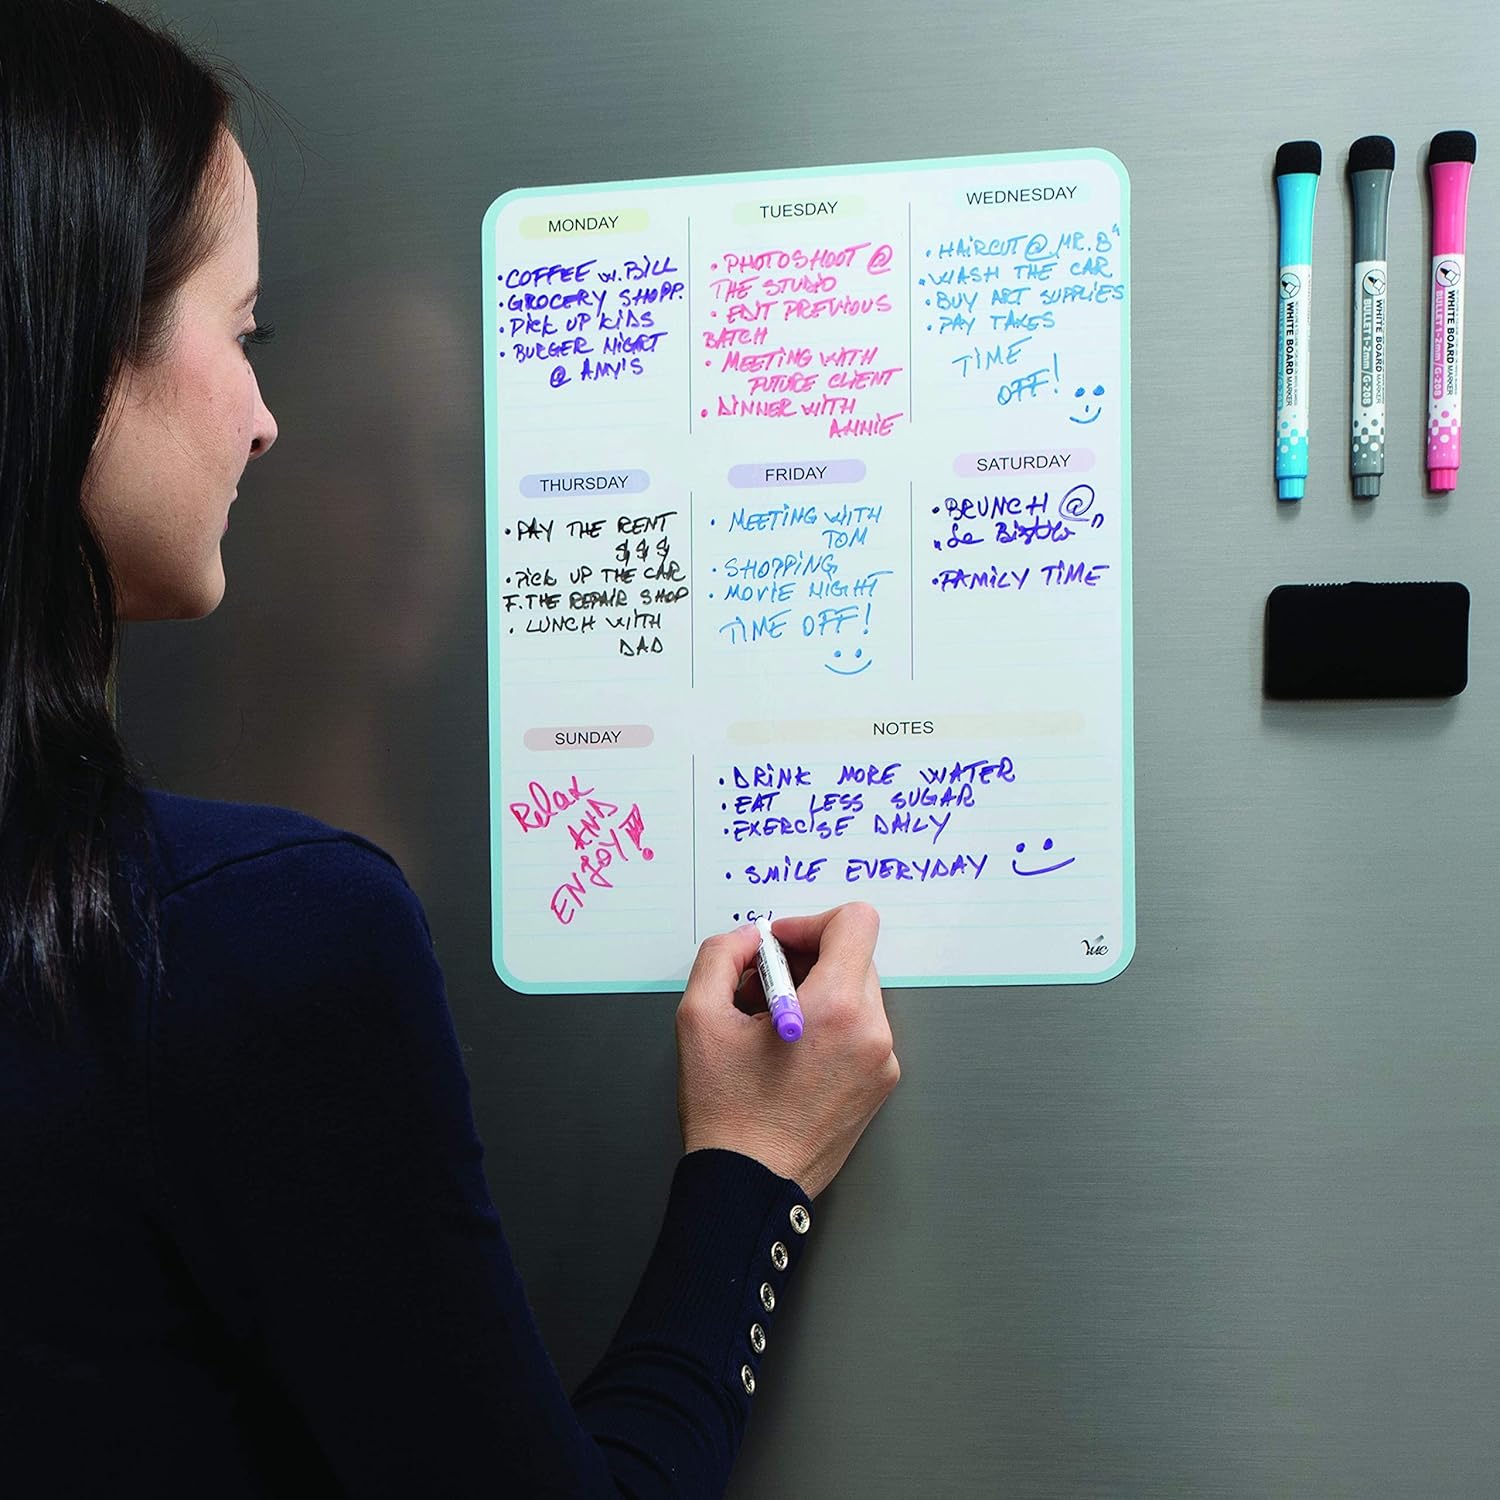 MONDAY
• COFFEE w. BILL
• GROCERY SHOPP.
• PICK UP KIDS
• BURGER NIGHT
@ AMY'S
TUESDAY
• PHOTOSHOOT @
THE STUDIO
• EDIT PREVIOUS
BATCH
• MEETING WITH
FUTURE CLIENT
• DINNER WITH
ANNIE
WEDNESDAY
• HAIRCUT @ „MR. B“
• WASH THE CAR
• BUY ART SUPPLIES
• PAY TAXES
TIME
OFF!
THURSDAY
• PAY THE RENT
$ $ $
• PICK UP THE CAR
F. THE REPAIR SHOP
• LUNCH WITH
DAD
FRIDAY
• MEETING WITH
TOM
• SHOPPING
• MOVIE NIGHT
TIME OFF!
SATURDAY
• BRUNCH @
„Le Bistro"
• FAMILY TIME
SUNDAY
Relax
AND
ENJOY!!!
NOTES
• DRINK MORE WATER
• EAT LESS SUGAR
• EXERCISE DAILY
• SMILE EVERYDAY
WHITE BOARD MARKER
BULLET 1-2mm / G-208
WHITE BOARD MARKER
BULLET 1-2mm / G-208
WHITE BOARD MARKER
BULLET 1-2mm / G-208